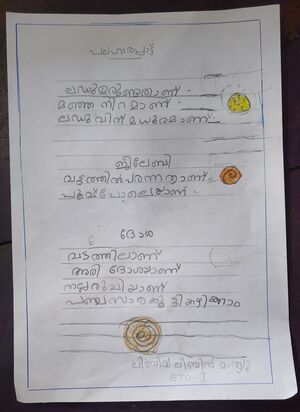 പലഹാരപ്പാട്ട്
ലഡുഉരുണ്ടതാണ്
മഞ്ഞ നിറമാണ്
ലഡുവിന് മധുരമാണ്
ജിലേബി
വട്ടത്തിൽപരന്നതാണ്
പൂവ്പോലെയാണ്
ദോശ
വട്ടത്തിലാണ്
അരി ദോശയാണ്
നല്ലരുചിയാണ്
പഞ്ചസാരകൂട്ടികഴിക്കാം
ലിബിൻ മാത്യു
STD-I